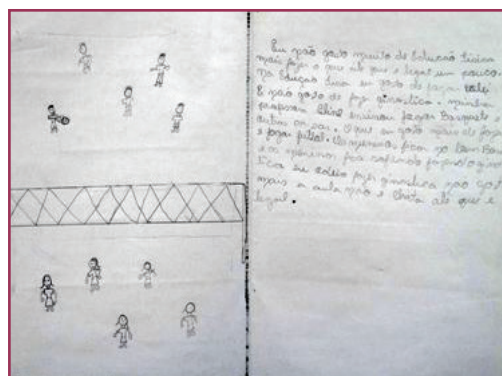 Eu não gosto muito de Educação Física
mais fazer o que até que e legal um pouco.
Na Educação Física eu gosto de jogar volei
E não gosto de fazer ginastica. minha
professora ensinou jogar Basquete e
outras coisas. O que eu gosto mais de fazer
e jogar futsal. Os meninos ficam no bem Bom
e as meninas fica sofrendo fazendo ginas
tica eu odeio fazer ginastica não gosto
mais a aula não e Chata até que e
legal.